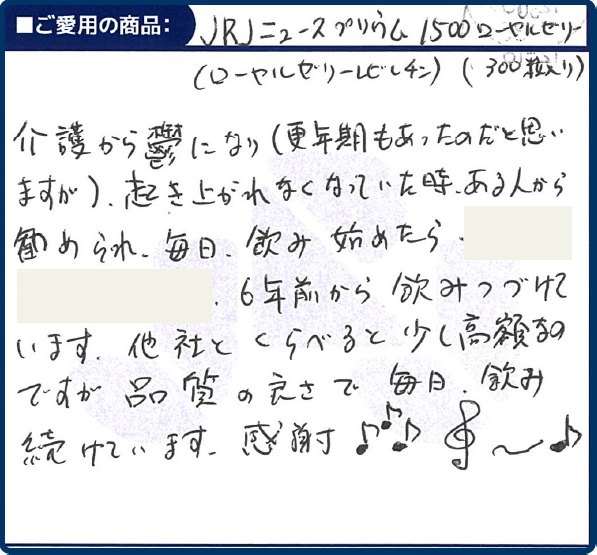 ■ご愛用の商品：JRJニュースプリウム1500ローヤルゼリー
(ローヤルゼリーレビレチン)(300粒入り)
介護から鬱になり(更年期もあったのだと思い
ますが)、起き上がれなくなっていた時、ある人から
勧められ、毎日、飲み始めたら、
、6年前から飲みつづけて
います。他社とくらべると少し高額なの
ですが品質の良さで毎日、飲み
続けています。感謝